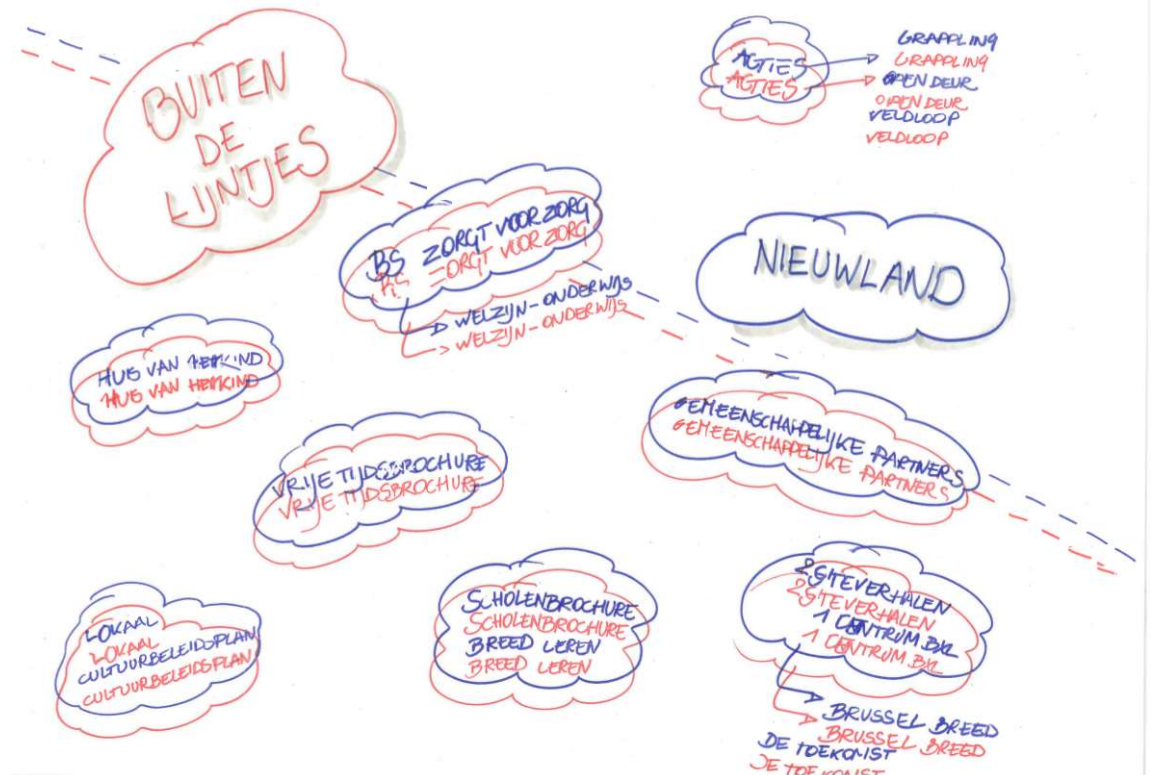 BUITEN
DE
LIJNTJES
ACTIES
ACTIES
GRAPPLING
GRAPPLING
OPEN DEUR
OPEN DEUR
VELDLOOP
VELDLOOP
BS ZORGT VOOR ZORG
BS ZORGT VOOR ZORG
WELZIJN-ONDERWIJS
WELZIJN-ONDERWIJS
NIEUWLAND
HUIS VAN HET KIND
HUIS VAN HET KIND
GEMEENSCHAPPELIJKE PARTNERS
GEMEENSCHAPPELIJKE PARTNERS
VRIJE TIJDSBROCHURE
VRIJE TIJDSBROCHURE
LOKAAL
LOKAAL
CULTUURBELEIDSPLAN
CULTUURBELEIDSPLAN
SCHOLENBROCHURE
SCHOLENBROCHURE
BREED LEREN
BREED LEREN
2 SITEVERHALEN
2 SITEVERHALEN
1 CENTRUM BXL
1 CENTRUM BXL
BRUSSEL BREED
BRUSSEL BREED
DE TOEKOMST
DE TOEKOMST